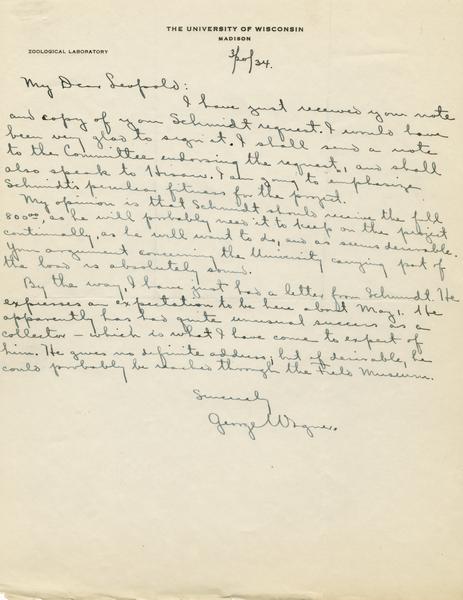 THE UNIVERSITY OF WISCONSIN
MADISON
ZOOLOGICAL LABORATORY
3/20/34.
My Dear Leopold:
I have just received your note
and copy of your Schmidt request. I would have
been very glad to sign it. I shall send a note
to the Committee endorsing the request, and shall
also speak to Hisaw. I am going to emphasize
Schmidt's peculiar fitness for the project.
My opinion is that Schmidt should receive the full
800.00, as he will probably need it to keep on the project
continually, as he will want to do, and as seems desirable.
Your argument concerning the University carrying part of
the load is absolutely sound.
By the way, I have just had a letter from Schmidt. He
expresses an expectation to be here about May 1. He
apparently has had quite unusual success as a
collector – which is what I have come to expect of
him. He gives no definite address, but if desirable, he
could probably be reached through the Field Museum.
Sincerely
George Wagner.